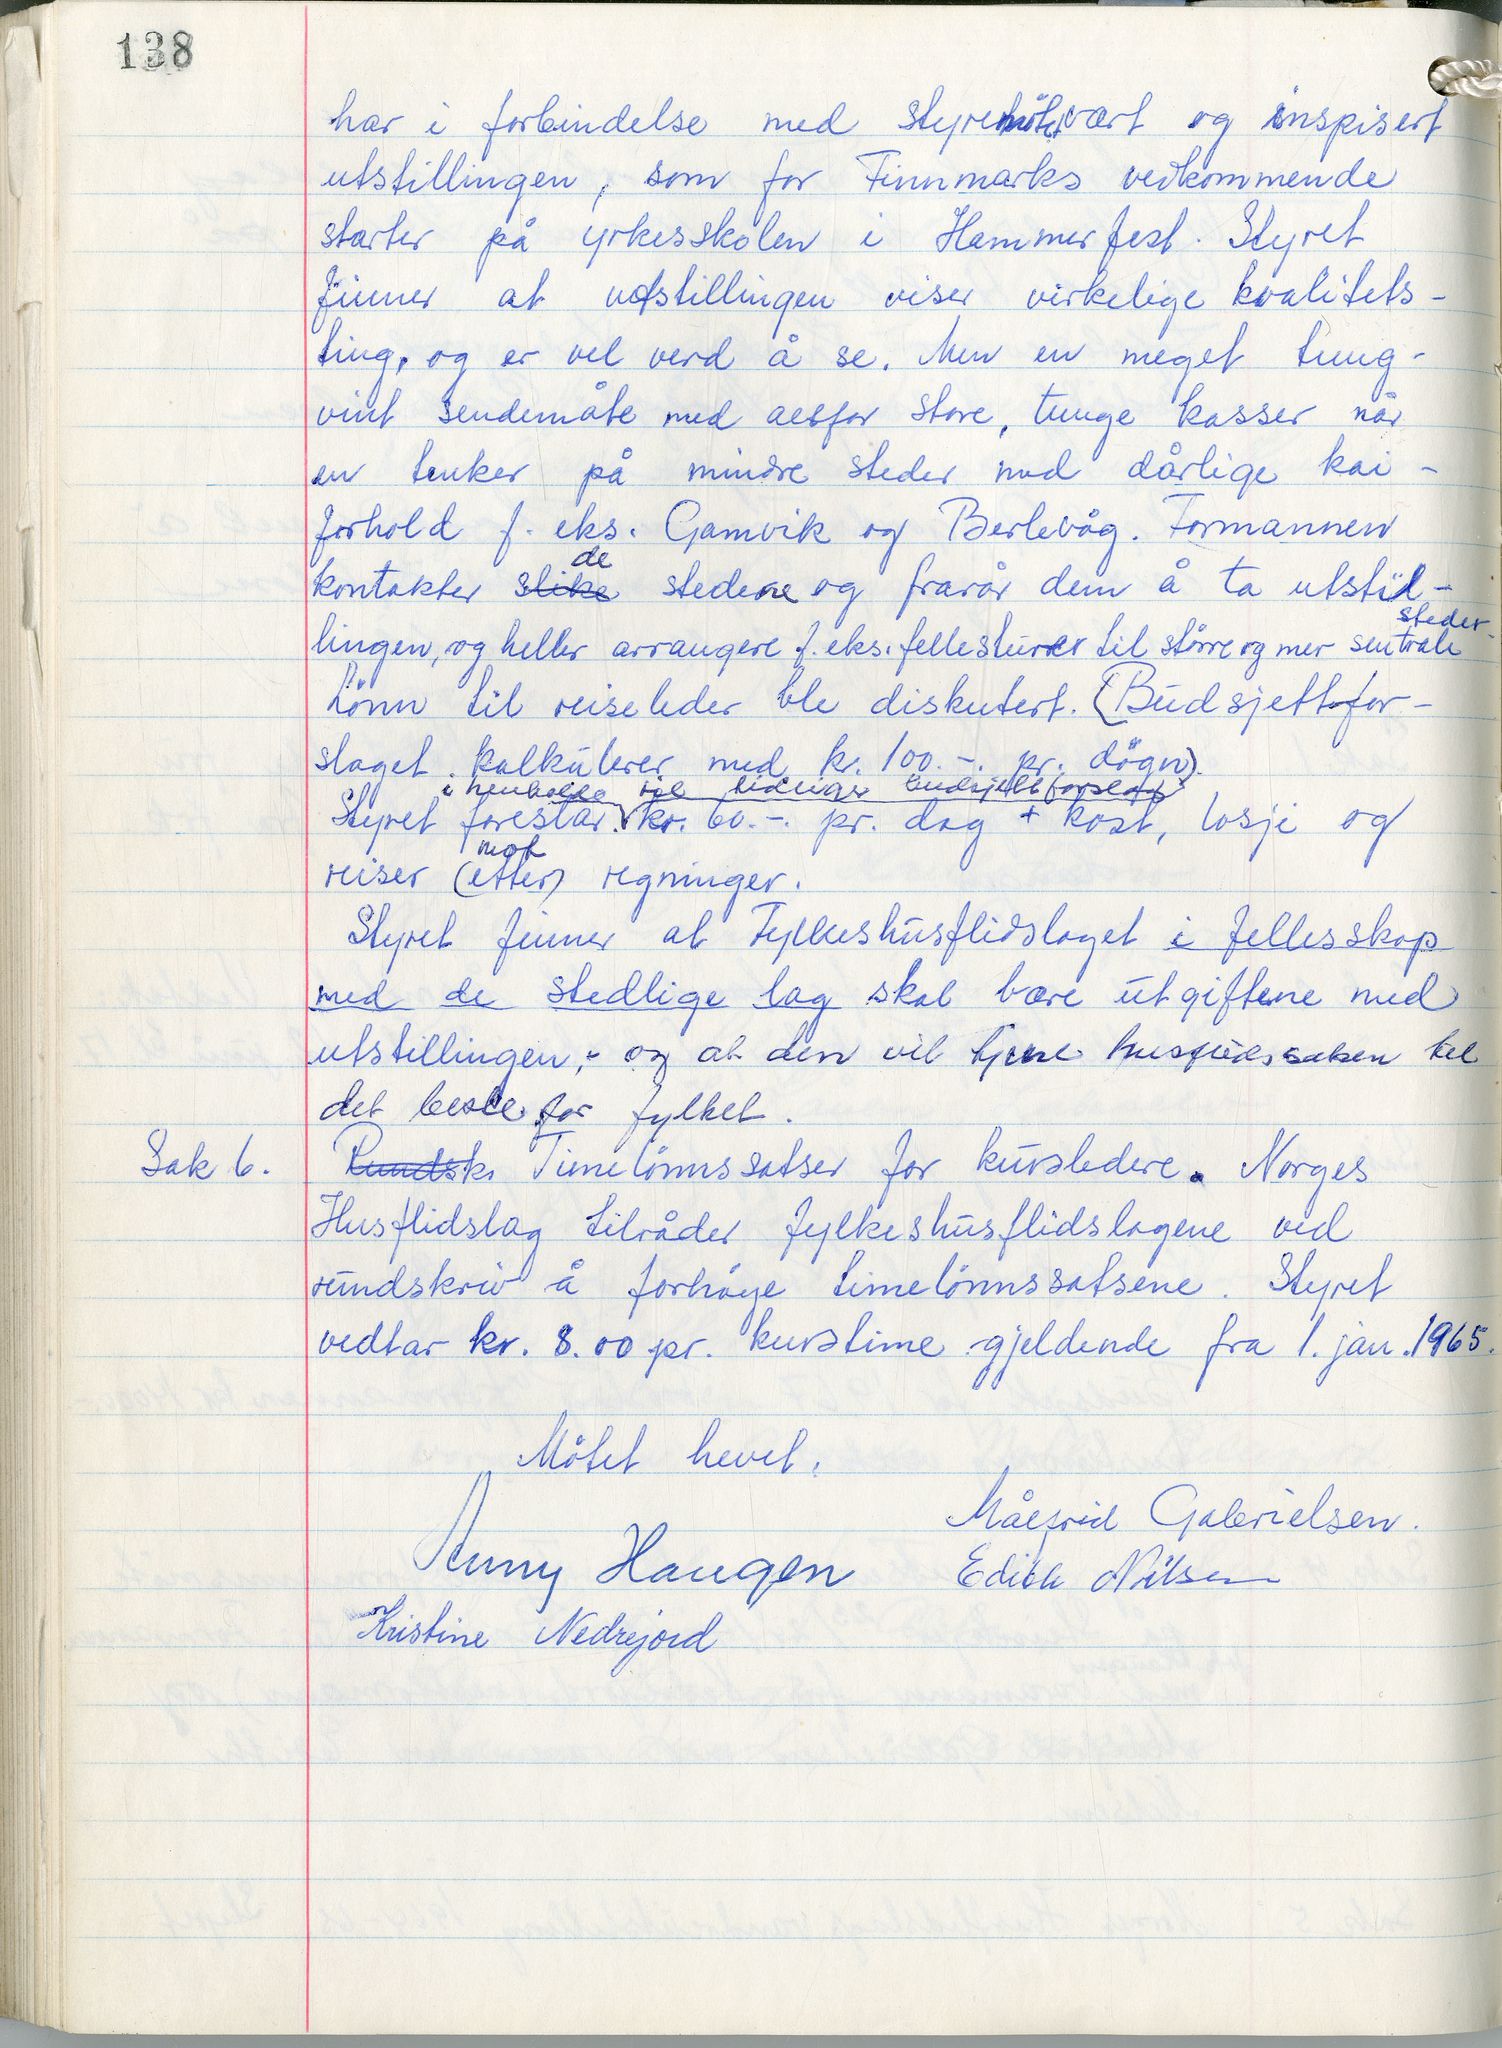 138
har i forbindelse med styremöte vært og inspisert
utstillingen, som for Finnmarks vedkommende
starter på yrkesskolen i Hammerfest. Styret
finner at utstillingen viser virkelige kvalitets-
ting, og er vel verd å se. Men en meget tung-
vint sendemåte med altfor store, tunge kasser når
en tenker på mindre steder med dårlige kai-
forhold f. eks. Gamvik og Berlevåg. Formannen
de
kontakter slike stedene og frarår dem å ta utstil-
steder.
lingen, og heller arrangere f. eks. fellesturer til större og mer sentrale
Lönn til reiseleder ble diskutert. (Budsjettfor-
slaget kalkulerer med kr. 100.-. pr. dögn).
i henhold til tidligere budsjettforslag
Styret foreslår kr. 60.-. pr. dag + kost, losji og
mot
reiser (etter) regninger.
Styret finner at Fylkeshusflidslaget i fellesskap
med de stedlige lag skal bære utgiftene med
utstillingen, og at den vil tjene husflidssaken til
det beste for fylket.
Sak 6. Rundsk. Timelönnssatser for kursledere. Norges
Husflidslag tilråder fylkeshusflidslagene ved
rundskriv å forhöye timelönnssatsene. Styret
vedtar kr. 8.00 pr. kurstime gjeldende fra 1. jan. 1965.
Mötet hevet.
Målfrid Gabrielsen.
Anny Haugen Edith Nilsen
Kristine Nedrejord